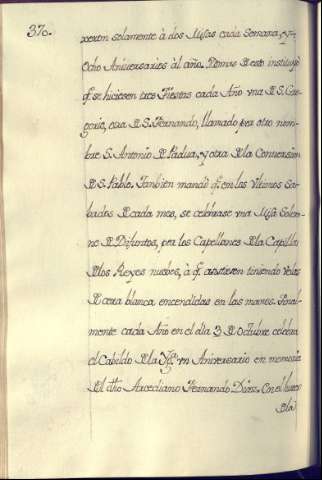 370.
xeron solamente à dos Missas cada Semana, y
Ocho Aniversarios àl año. Demas D esto instituyó
q̃. se hiciesen tres Fiestas cada Año vna D S. Gre-
gorio, otra D S. Fernando, llamado por otro nom-
bre S. Antonio D Padua, y otra D la Conversion
D S. Pablo. Tambien mandó q̃. en los Vltimos Sa-
bados D cada mes, se celebrase vna Missa Solem-
ne D Difuntos, por los Capellanes D la Capilla
D los Reyes nuebos, à q̃. asistiesen teniendo Velas
D cera blanca encendidas en las manos. Final-
mente cada Año en el dia 3 D Octubre celebra
el Cabildo D la Yg.ª vn Aniversario en memoria
D l dho Arcediano Fernando Diaz. Con el
D la